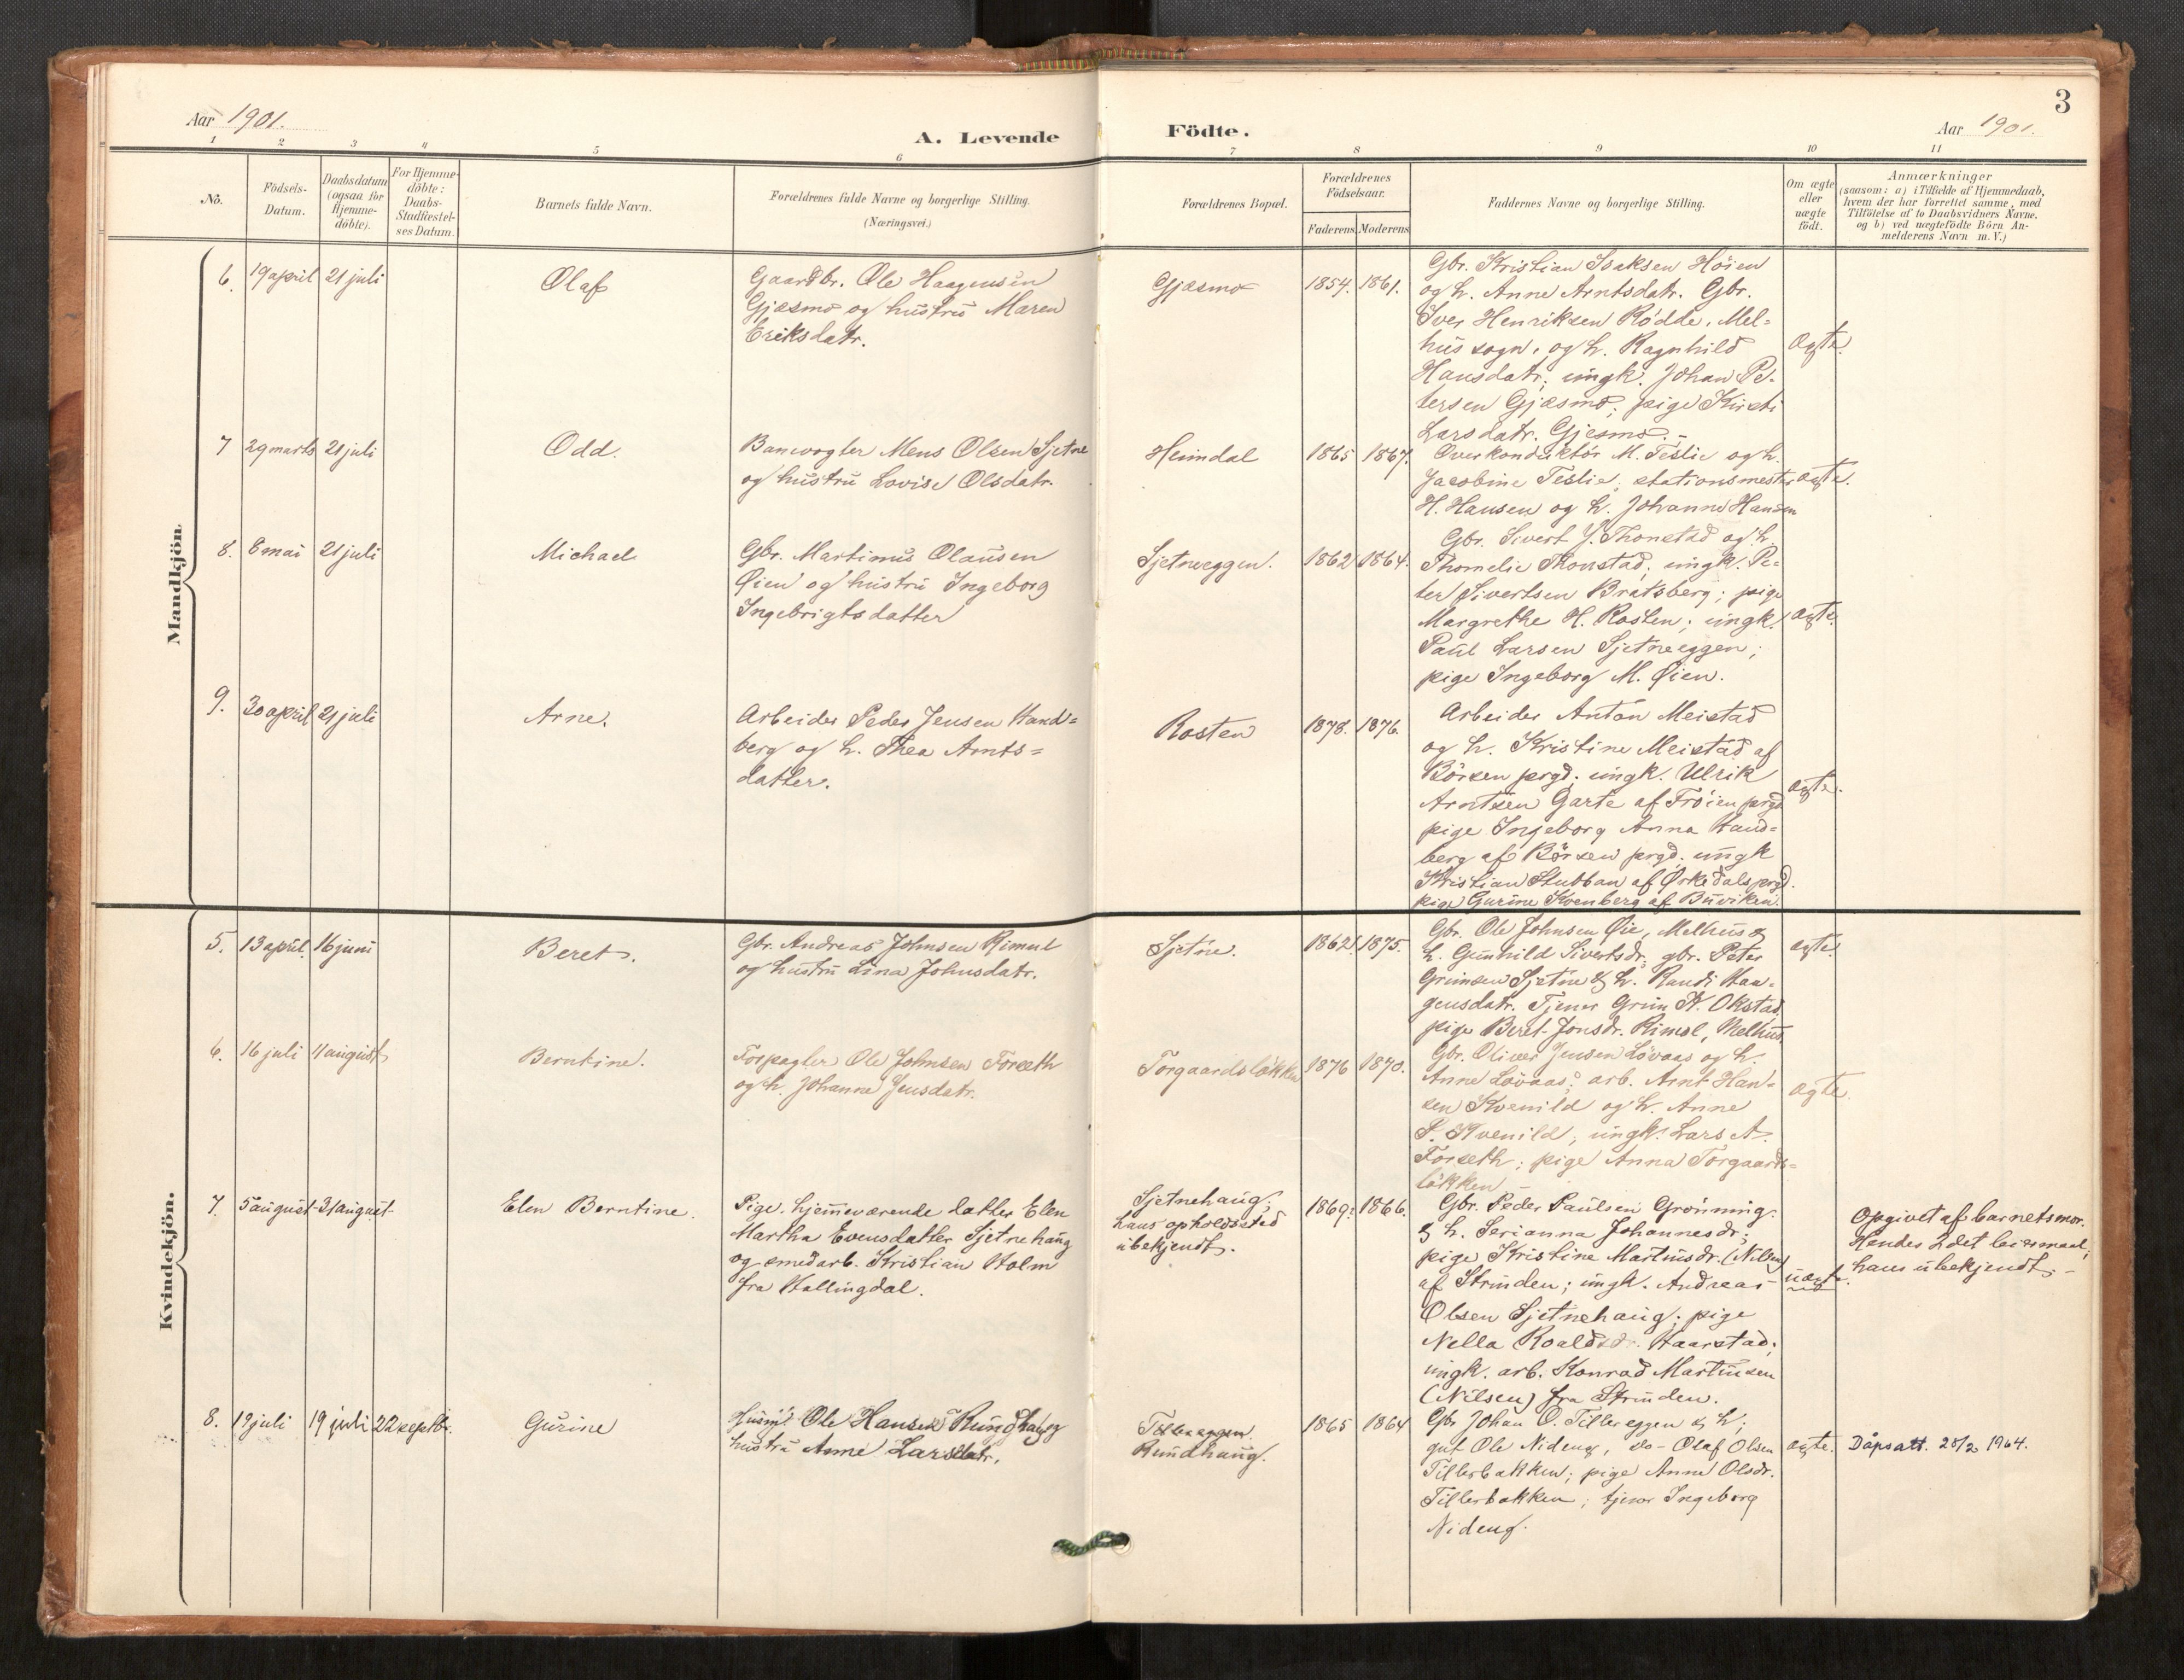 3
Aar 1901.
A. Levende Födte.
Aar 1901.
1 2 3 4 5 6 7 8 9 10 11
No.
Födsels-
Datum.
Daabsdatum
(ogsaa for
Hjemme-
döbte).
For Hjemme-
döbte:
Daabs-
Stadfestel-
ses Datum.
Barnets fulde Navn.
Forældrenes fulde Navne og borgerlige Stilling.
(Næringsvei.)
Forældrenes Bopæl.
Forældrenes
Födselsaar.
Faderens Moderens
Faddernes Navne og borgerlige Stilling.
Om ægte
eller
uægte
født.
Anmærkninger
(saasom: a) i Tilfælde af Hjemmedaab,
hvem der har forrettet samme, med
Tilföielse af to Daabsvidners Navne.
og b) ved uægtefödte Börn An-
melderens Navn m.V.)
Mandkjön.
6. 19 april 21 juli
Olaf
Gaardbr. Ole Haagensen
Gjæsmo og hustru Maren
Eriksdatr.
Gjæsmo
1854. 1861.
Gbr. Kristian Isaksen Höien
og h. Anne Arntsdatr. Gbr.
Iver Henriksen Rödde, Mel-
hus sogn, og h. Ragnhild
Hansdatr; ungk. Johan Pe-
tersen Gjæsmo; pige Kirsti
Larsdatr. Gjesmo.-
ægte.
7 29 marts 21 juli
Odd.
Banevogter Mens Olsen Sjetne
og hustru Lovise Olsdatr.
Heimdal
1865 1867.
Overkonduktör M. Teslie og h.
Jacobine Teslie, stationsmester
H. Hansen og h. Johanne Hansen
ægte.
8. 8 mai 21 juli
Michael
Gbr. Martinus Olausen
Øien og hustru Ingeborg
Ingebrigtsdatter
Sjetneeggen.
1862 1864.
Gbr. Sivert J. Thonstad og h.
Thomelie Thonstad; ungk. Pe-
ter Sivertsen Bratsberg; pige
Margrethe H. Rosten; ungk.
Paul Larsen Sjetneeggen;
pige Ingeborg M. Øien.
ægte.
9. 30 april 21 juli
Arne.
Arbeider Peder Jensen Hand-
berg og h. Thea Arnts-
datter.
Rosten
1878. 1876.
Arbeider Anton Meistad
og h. Kristine Meistad af
Börsen prgd; ungk. Ulrik
Arntsen Garte af Fröien prgd
pige Ingeborg Anna Hand-
berg af Börsen prgd; ungk
Kristian Stubban af Ørkedals prgd.
pige Gurine Kvenberg af Buviken.
ægte.
Kvindekjön.
5. 13 april. 16 juni
Beret.
Gbr. Andreas Johnsen Rimul
og hustru Lina Johnsdatr.
Sjetne.
1862. 1875.
Gbr. Ole Johnsen Øie, Melhus &
h. Gunhild Sivertsdr; gbr. Peter
Grunsen Sjetne & h. Randi Haa-
gensdatr. Tjener Grün H. Okstad,
pige Beret Jonsdr. Rimol, Melhus.
ægte.
6. 16 juli 11 august
Berntine.
Forpagter Ole Johnsen Forseth
og h. Johanne Jensdatr.
Torgaardslökken
1876 1870.
Gbr. Oliver Jensen Lövaas og h.
Anne Lövaas; arb. Arnt Han-
sen Kvenild og h. Anne
S. Kvenild; ungk. Lars A.
Forseth; pige Anna Torgaards-
lökken
ægte.
7. 5 august 31 august
Elen Berntine.
Pige, hjemmeværende datter Elen
Martha Evensdatter Sjetnehaug
og smedarb. Kristian Holm
fra Hallingdal.
Sjetnehaug;
hans opholdssted
ubekjendt.
1869. 1866.
Gbr. Peder Paulsen Grönning
& h. Serianna Johannesdr;
pige Kristine Martinusdr. (Nilsen)
af Strinden; ungk. Andreas
Olsen Sjetnehaug; pige
Nella Roaldsdr. Haarstad;
ungk. arb. Konrad Martinsen
(Nilsen) fra Strinden.
uægte.
Opgivet af barnets mor.
Hendes 2det leiermaal;
hans ubekjendt.-
8. 19 juli 19 juli 22 septbr.
Gurine
Husm. Ole Hansen Rundhaug
hustru Anne Larsdatr.
Tillereggen.
Rundhaug.
1865 1864
Gbr Johan O. Tillereggen & h;
gut Ole Nideng, do- Olaf Olsen
Tillerbakken; pige Anne Olsdr.
Tillerbakken; tjener Ingeborg
Nideng.
ægte.
Dåpsatt. 28/2 1964.